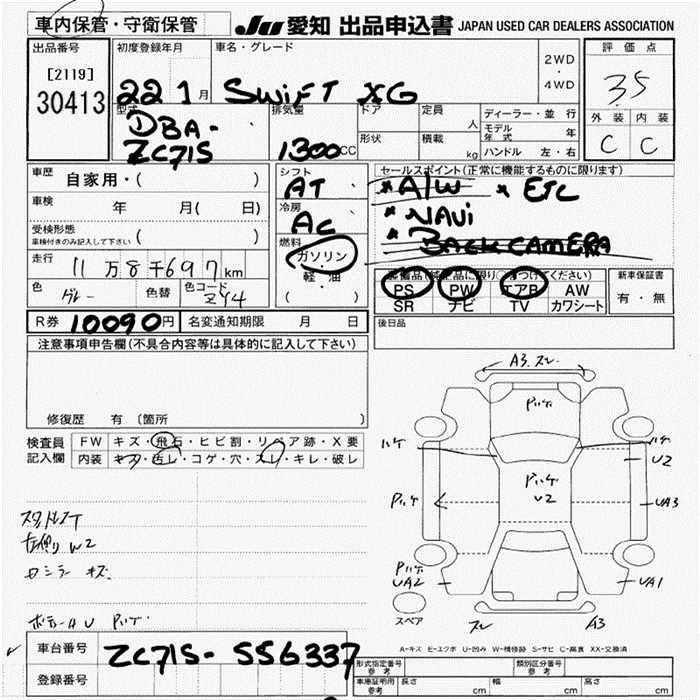 車内保管・守衛保管 JU 愛知 出品申込書 JAPAN USED CAR DEALERS ASSOCIATION
出品番号 初度登録年月 車名・グレード 2WD・4WD 評価点
[2119]
30413 22 1月 SWIFT XG 3.5
型式 排気量 ドア 定員 人 ディーラー・並行 外装 内装
DBA- 形状 積載 kg モデル年式 年 C C
ZC71S 1300cc ハンドル 左・右
車歴 自家用・( ) シフト セールスポイント(正常に機能するものに限ります)
AT * A/W * ETC
車検 年 月( 日) 冷房 * NAVi
受検形態 AC BACK CAMERA
車検付きのみ記入して下さい ( ) 燃料
走行 11万8千697km ガソリン
軽・油
( )
PS PW エアB AW 新車保証書
SR ナビ TV カワシート 有・無
色 グレー 色替 色コード ZY4
R券 10090円 名変通知期限 月 日 後日品
注意事項申告欄(不具合内容等は具体的に記入して下さい)
修復歴 有 (箇所 )
検査員 FW キズ・飛石・ヒビ割・リペア跡・X要
記入欄 内装 キズ・汚レ・コゲ・穴・スレ・キレ・破レ
A3 スレ
ハゲ
U2
UA3
UA2
UA1
スレ A3
スペア
W2
キズ
A-キズ E-エクボ U-凹み W-補修跡 S-サビ C-腐食 XX-交換済
車台番号 ZC71S-556337
登録番号
形式指定番号 参考 類別区分番号 参考
車庫証明用 参考 長さ cm 幅 cm 高さ cm